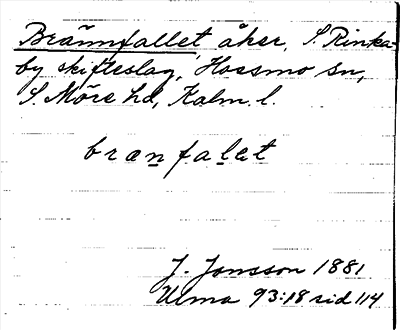 Brännfallet åker, S. Rinka-
by skifteslag, Hossmo sn,
S. Möre hd, Kalm. l.
brænfalet
J. Jonsson 1881
Ulma 93:18 sid 114